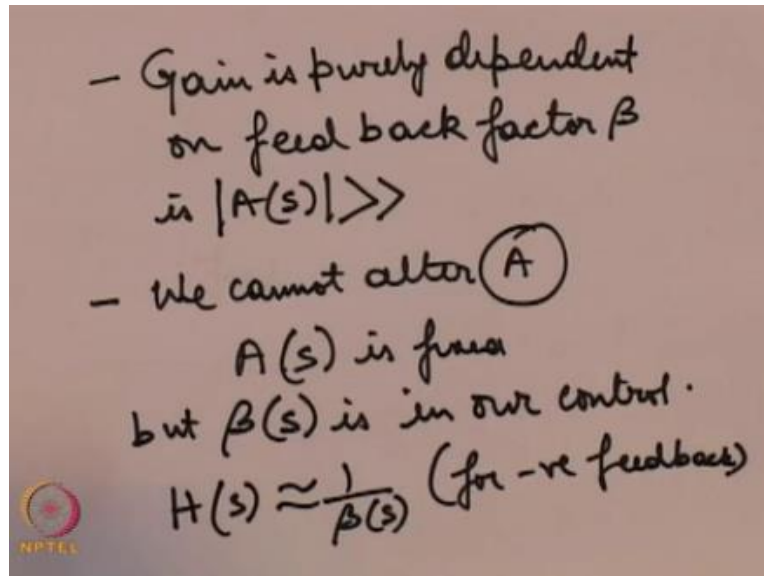 - Gain is purely dependent
on feed back factor β
is |A(s)|>>
- We cannot alter A
A(s) is fixed
but β(s) is in our control.
H(s) ≈ 1/β(s) (for -ve feedback)
NPTEL